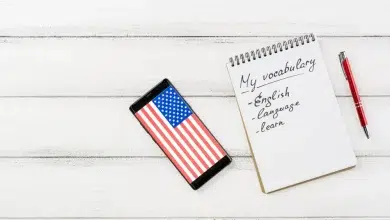 My vocabulary
-English
-language
-learn